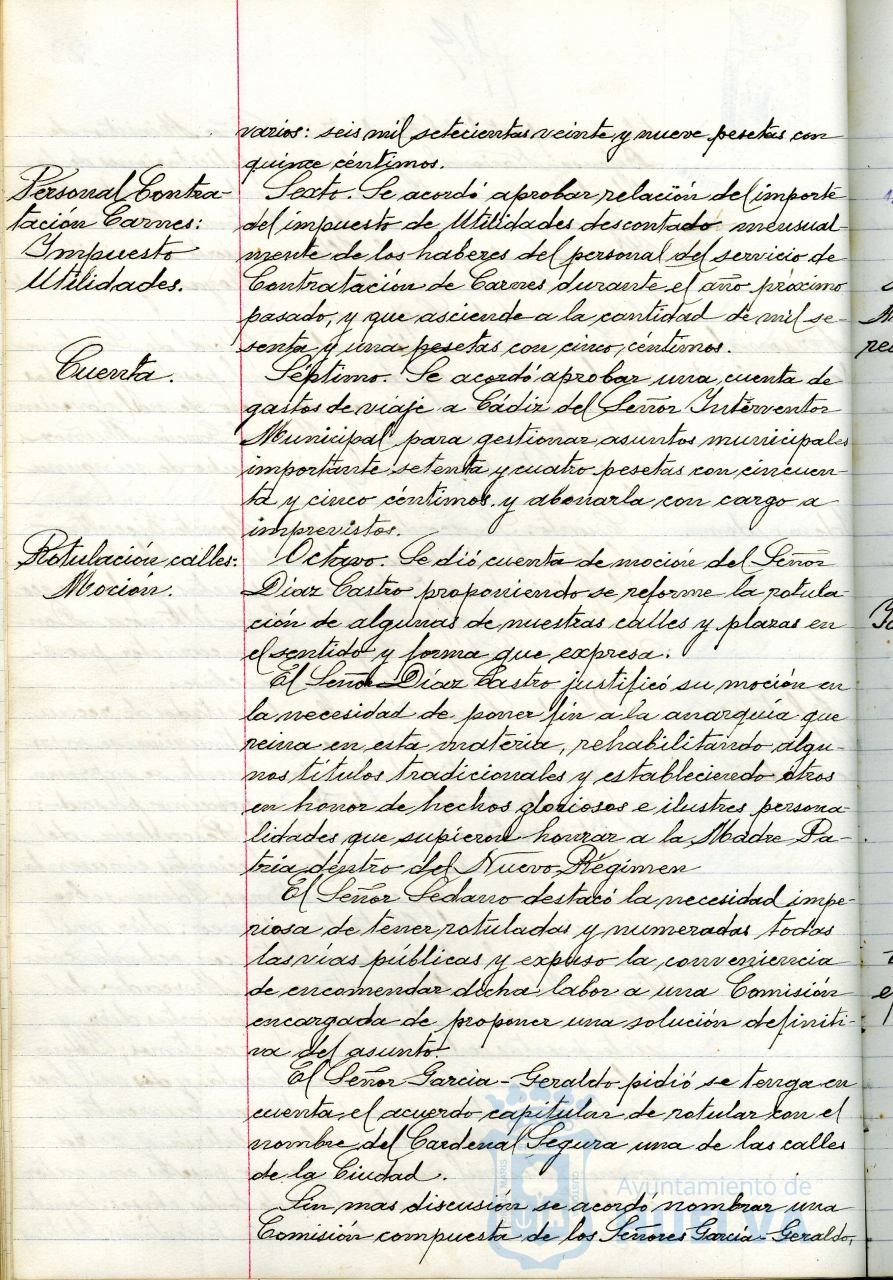 varios: seis mil setecientas veinte y nueve pesetas con
quince céntimos.
Personal Contra-
tación Carnes:
Impuesto
Utilidades.
Sexto. Se acordó aprobar relación del importe
del impuesto de Utilidades descontado mensual-
mente de los haberes del personal del servicio de
Contratación de Carnes durante el año próximo
pasado, y que asciende a la cantidad de mil se-
senta y una pesetas con cinco céntimos.
Cuenta.
Séptimo. Se acordó aprobar una cuenta de
gastos de viaje a Cádiz del Señor Interventor
Municipal para gestionar asuntos municipales
importante setenta y cuatro pesetas con cincuen-
ta y cinco céntimos y abonarla con cargo a
imprevistos.
Rotulación calles:
Moción.
Octavo. Se dió cuenta de moción del Señor
Díaz Castro proponiendo se reforme la rotula-
ción de algunas de nuestras calles y plazas en
el sentido y forma que expresa.
El Señor Díaz Castro justificó su moción en
la necesidad de poner fin a la anarquía que
reina en esta materia, rehabilitando algu-
nos títulos tradicionales y estableciendo otros
en honor de hechos gloriosos e ilustres persona-
lidades que supieron honrar a la Madre Pa-
tria dentro del Nuevo Régimen
El Señor Sedano destacó la necesidad impe-
riosa de tener rotuladas y numeradas todas
las vías públicas y expuso la conveniencia
de encomendar dicha labor a una Comisión
encargada de proponer una solución definiti-
va del asunto.
El Señor Garcia-Geraldo pidió se tenga en
cuenta el acuerdo capitular de rotular con el
nombre del Cardenal Segura una de las calles
de la Ciudad.
Sin mas discusión se acordó nombrar una
Comisión compuesta de los Señores García-Geraldo,
Ayuntamiento de
HUELVA